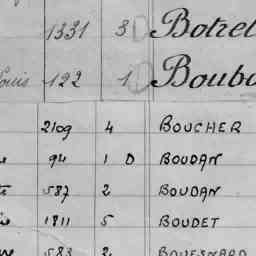 1331 3 D Botrel
Louis 122 1 D Boubo
2109 4 BOUCHER
94 1 D BOUDAN
587 2 BOUDAN
1811 5 BOUDET
583 2 BOUESNARD